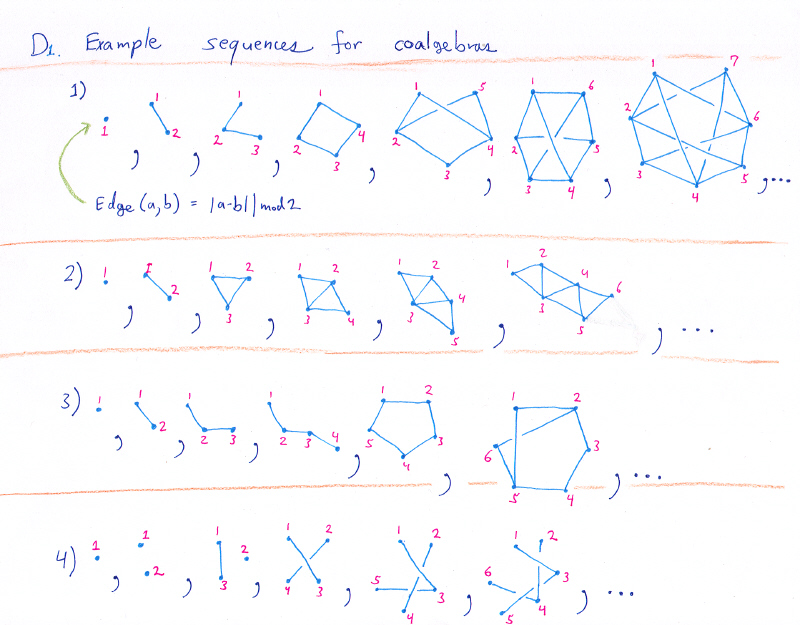 D1. Example sequences for coalgebras
1)
1 , 1 2 , 1 2 3 , 1 2 3 4 , 1 2 3 4 5 , 1 2 3 4 5 6 , 1 2 3 4 5 6 7 , ...
Edge (a,b) = |a-b| | mod 2
2) 1 , 1 2 , 1 2 3 , 1 2 3 4 , 1 2 3 4 5 , 1 2 3 4 5 6 , ...
3) 1 , 1 2 , 1 2 3 , 1 2 3 4 , 1 2 3 4 5 , 1 2 3 4 5 6 , ...
4) 1 , 1 2 , 1 2 3 , 1 2 3 4 , 1 2 3 4 5 , 1 2 3 4 5 6 , ...